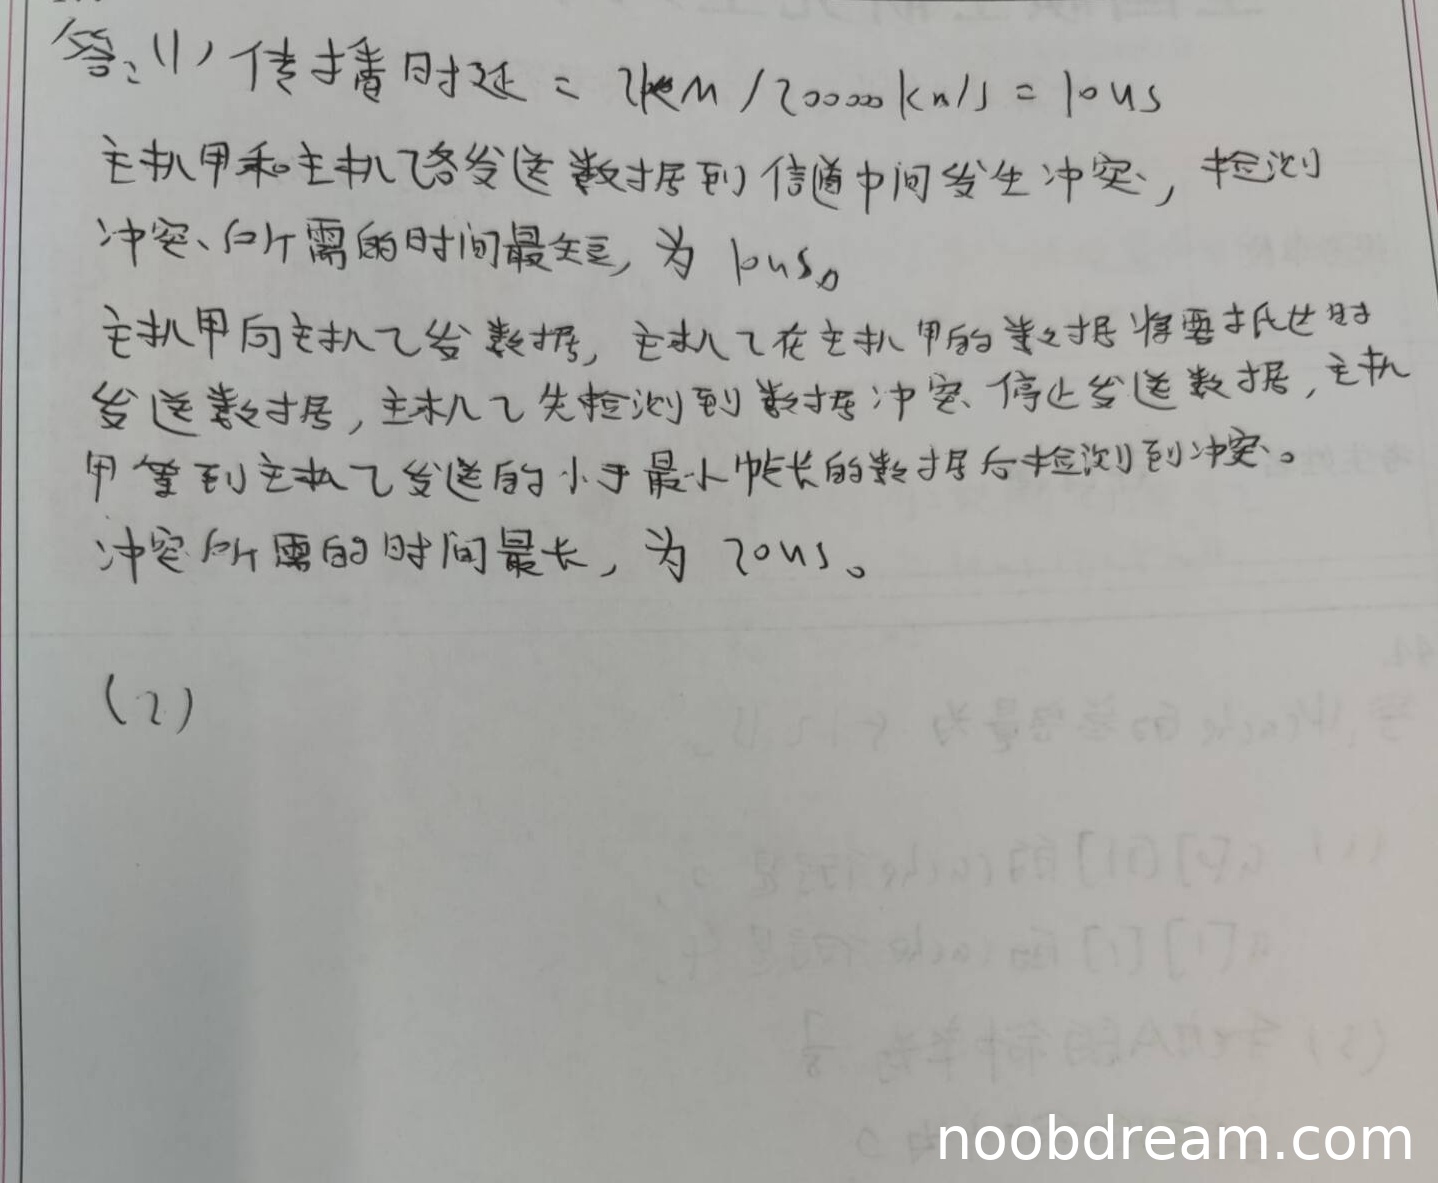 答:(1) 传播时延 = 2km / 200000km/s = 10us
主机甲和主机乙各发送数据到信道中间发生冲突, 检测
冲突、所需的时间最短, 为 10us。
主机甲向主机乙发数据, 主机乙在主机甲的数据将要抵达时
发送数据, 主机乙先检测到数据冲突、停止发送数据, 主机
甲等到主机乙发送的小于最小帧长的数据后检测到冲突。
冲突所需的时间最长, 为 20us。
(2)
noobdream.com